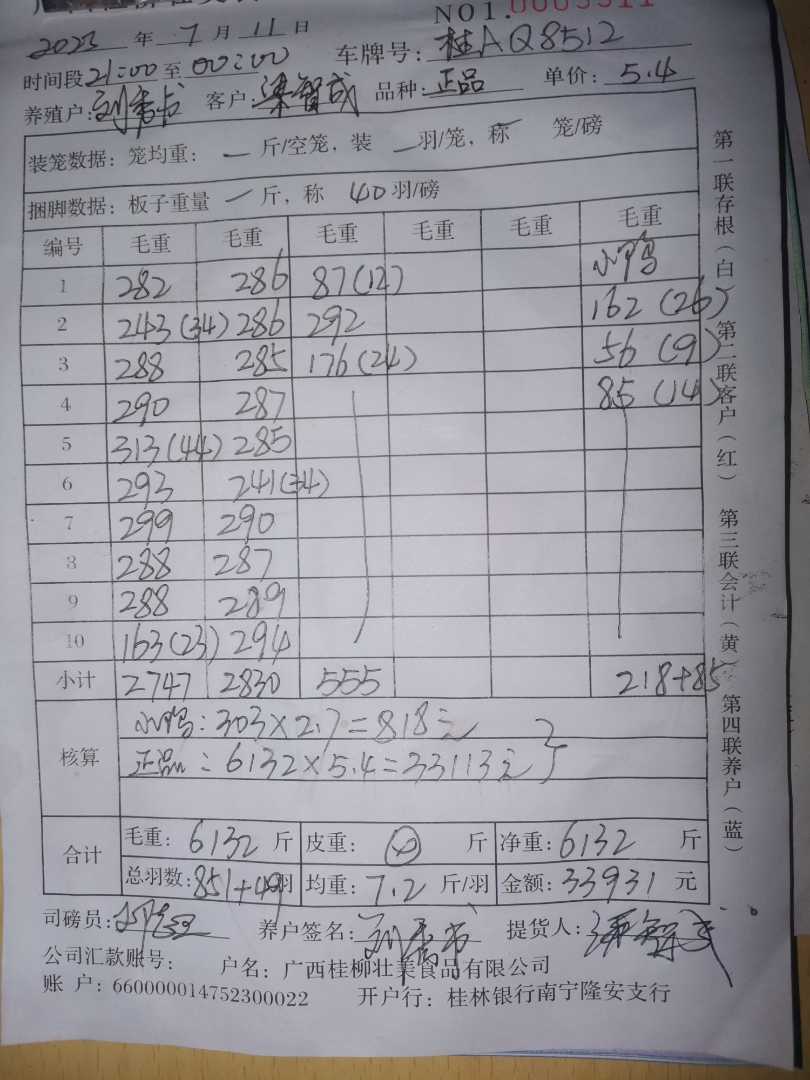 NO1.0005511
2023 年 7 月 11 日
时间段 21:00 至 00:00 车牌号: 桂AQ8512
养殖户: 客户: 梁智成 品种: 正品 单价: 5.4
装笼数据: 笼均重: — 斤/空笼, 装 — 羽/笼, 称 — 笼/磅
捆脚数据: 板子重量 — 斤, 称 40 羽/磅
编号 毛重 毛重 毛重 毛重 毛重 毛重
1 282 286 87(12) 小鸭
2 243(34) 286 292 162(26)
3 288 285 176(24) 56(9)
4 290 287 85(14)
5 313(44) 285
6 293 241(34)
7 299 290
8 288 287
9 288 289
10 163(23) 294
小计 2747 2830 555 218+85
核算 小鸭: 303×2.7=818元
正品: 6132×5.4=33113元
合计 毛重: 6132 斤 皮重: 0 斤 净重: 6132 斤
总羽数: 851+49 羽 均重: 7.2 斤/羽 金额: 33931 元
司磅员: 养户签名: 提货人: 梁智成
公司汇款账号: 户名: 广西桂柳壮美食品有限公司
账 户: 660000014752300022 开户行: 桂林银行南宁隆安支行
第一联存根(白) 第二联客户(红) 第三联会计(黄) 第四联养户(蓝)